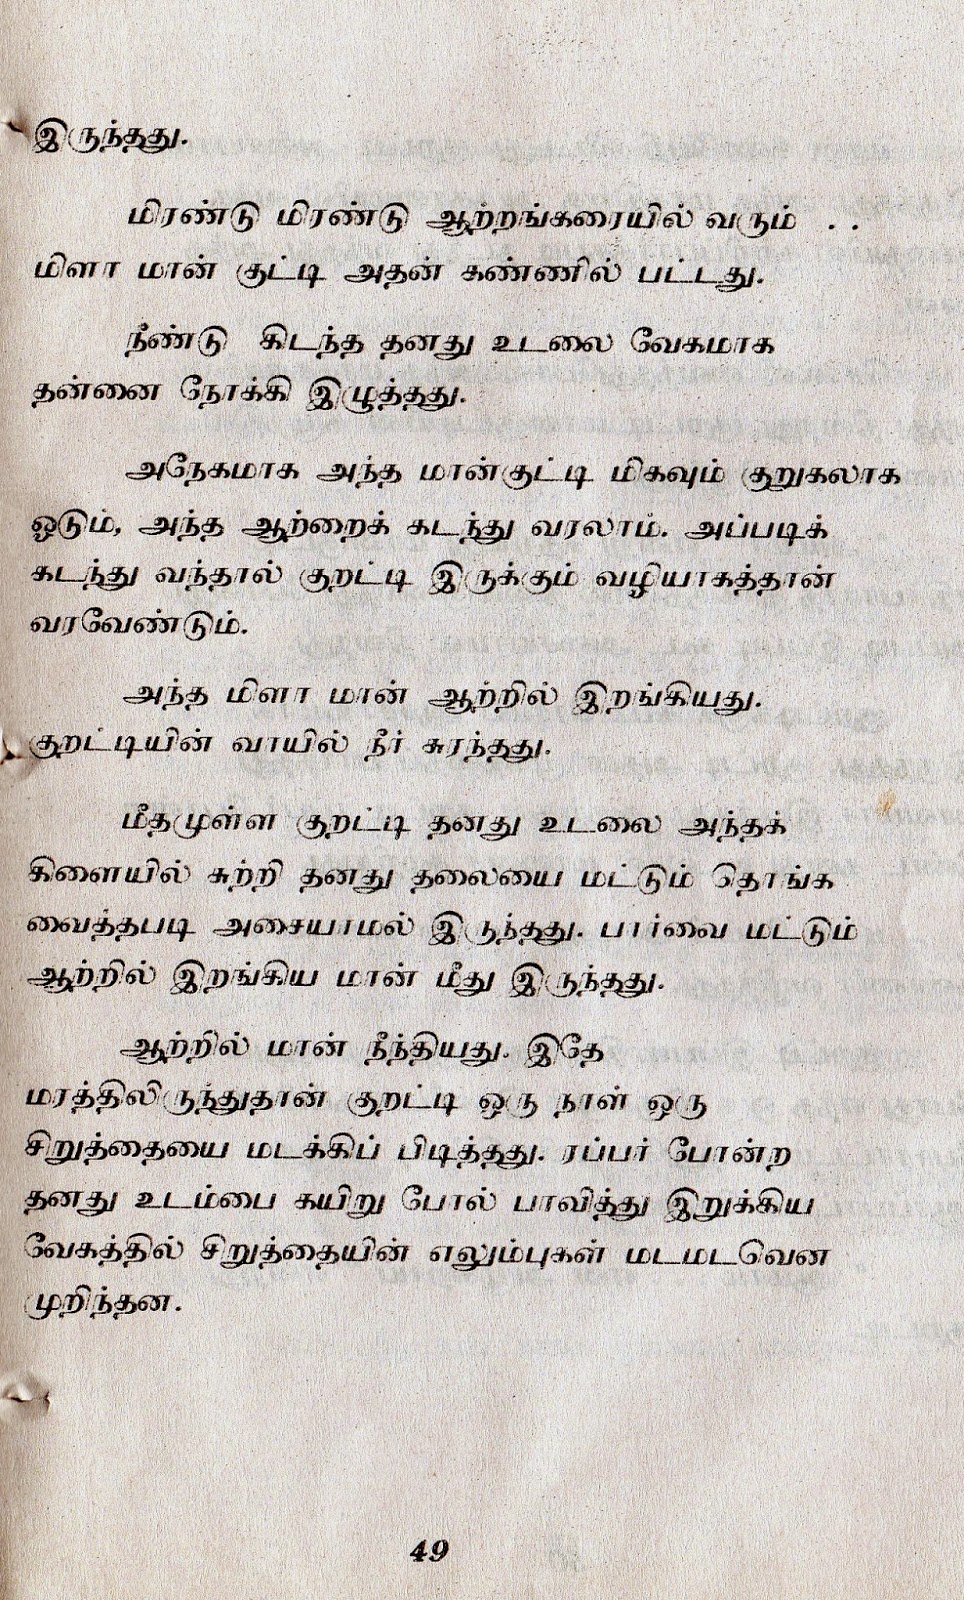 இருந்தது.
மிரண்டு மிரண்டு ஆற்றங்கரையில் வரும் . .
மிளா மான் குட்டி அதன் கண்ணில் பட்டது.
நீண்டு கிடந்த தனது உடலை வேகமாக
தன்னை நோக்கி இழுத்தது.
அநேகமாக அந்த மான்குட்டி மிகவும் குறுகலாக
ஓடும், அந்த ஆற்றைக் கடந்து வரலாம். அப்படிக்
கடந்து வந்தால் குறட்டி இருக்கும் வழியாகத்தான்
வரவேண்டும்.
அந்த மிளா மான் ஆற்றில் இறங்கியது.
குறட்டியின் வாயில் நீர் சுரந்தது.
மீதமுள்ள குறட்டி தனது உடலை அந்தக்
கிளையில் சுற்றி தனது தலையை மட்டும் தொங்க
வைத்தபடி அசையாமல் இருந்தது. பார்வை மட்டும்
ஆற்றில் இறங்கிய மான் மீது இருந்தது.
ஆற்றில் மான் நீந்தியது. இதே
மரத்திலிருந்துதான் குறட்டி ஒரு நாள் ஒரு
சிறுத்தையை மடக்கிப் பிடித்தது. ரப்பர் போன்ற
தனது உடம்பை கயிறு போல் பாவித்து இறுக்கிய
வேகத்தில் சிறுத்தையின் எலும்புகள் மடமடவென
முறிந்தன.
49